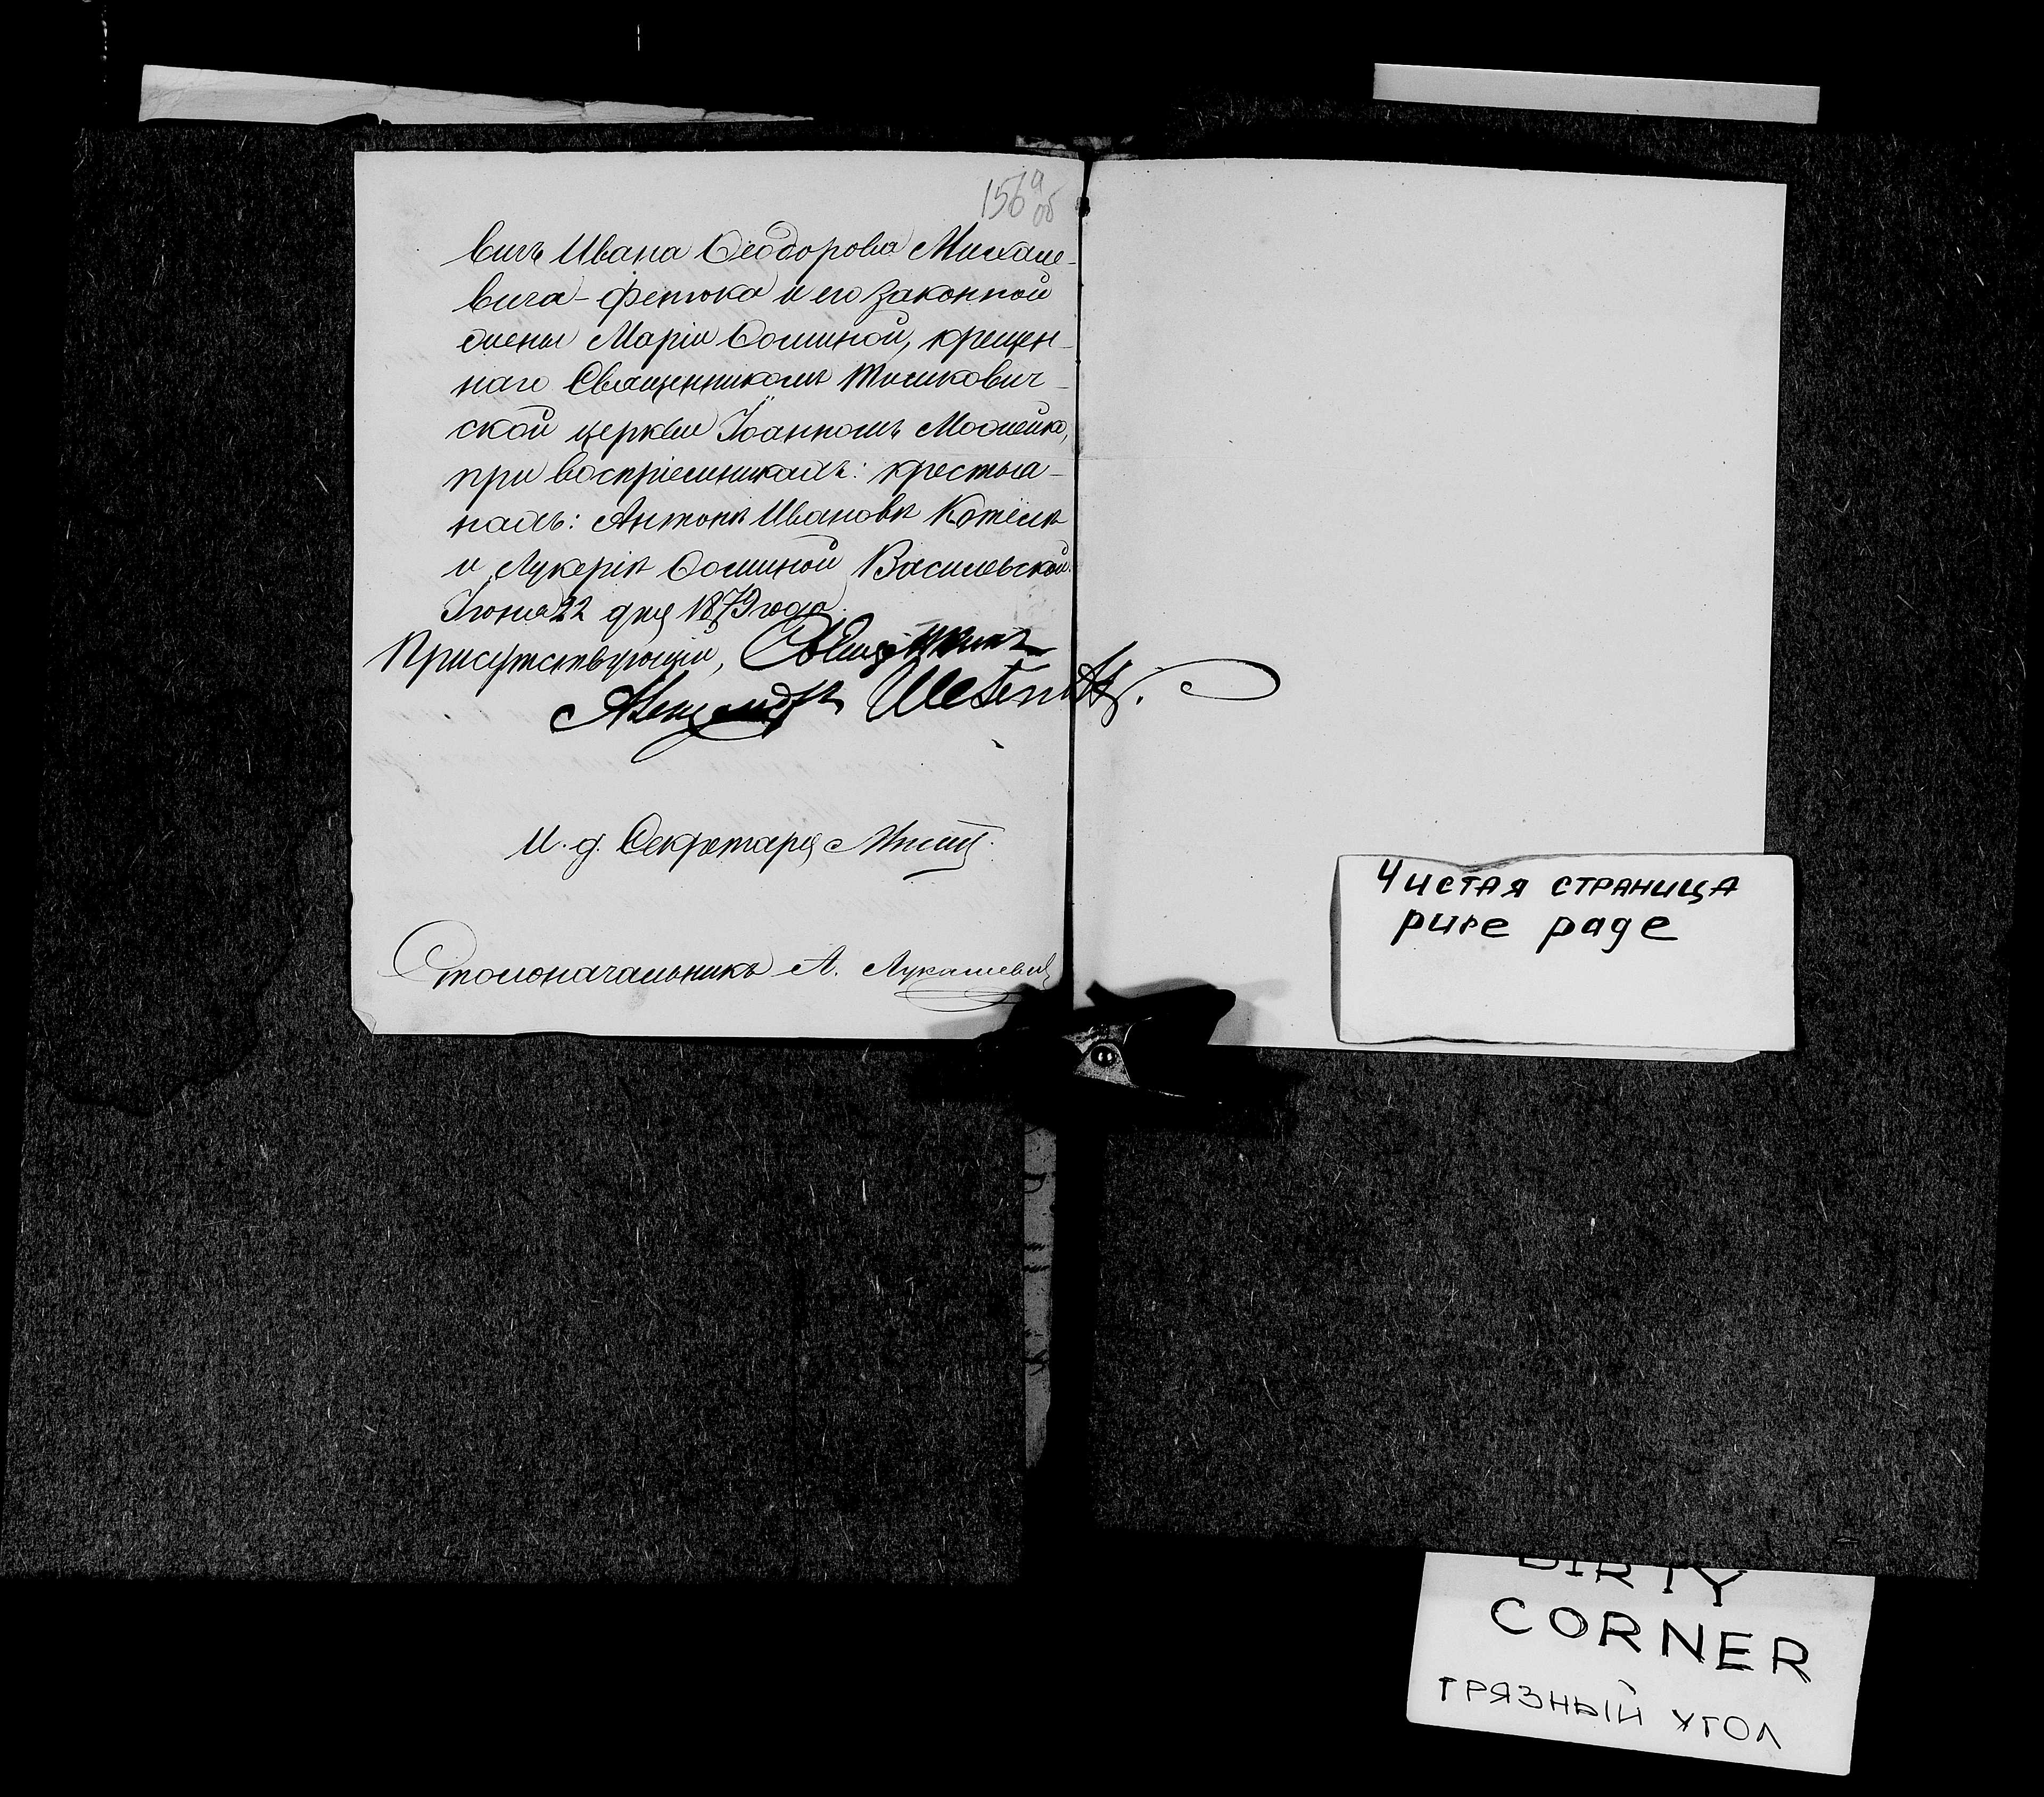 156а об
вичъ Ивана Ѳеодорова Михале-
вича-Фенюка и его законной
жены Маріи Ѳоминой, крещен-
наго Священникомъ Тишкович-
ской церкви ІоанномъМожейко,
при воспріемникахъ: крестья-
нахъ: Антонѣ Ивановѣ Котёлѣ
и Лукеріи Ѳоминой Василевской.
Іюня 22 дня 1879 года.
Присутствующій, Священникъ
Александръ
И. д. Секретаря
Столоначальникъ А. Лукашевичъ
Чистая страница
pure page
DIRTY
CORNER
грязный угол